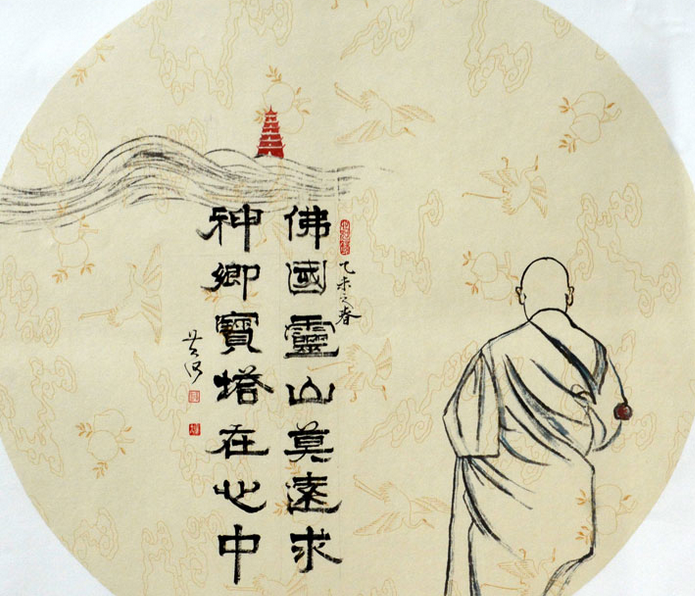 佛國靈山莫遠求
神鄉寶塔在心中
乙未之春